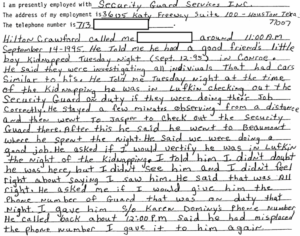 I am presently employed with Security Guard Services Inc.
The address of my employment is 3605 Katy Freeway Suite 100 - Houston Texas
The telephone number is 713 7007
Hilton Crawford called me around 11:00 AM
September 14-1995. He Told me he had a good friend's little
boy Kidnapped Tuesday Night (Sept. 12-95) in Conroe.
He Said they were investigating all individuals That had cars
Similar to his. He Told me Tuesday night at the time
of the Kidnapping he was in Lufkin checking out the
Security Guard on duty if they were doing their Job
Correctly. He stayed a few minutes observing from a distance
and then went To Jasper to Check out the Security
Guard there. After this he said he went to Beaumont
where he spent the night. He Said we were doing a
good job. He asked if I would verify he was in Lufkin
the night of the Kidnapping. I told him I didn't doubt
he was here, but I didn't see him and I didn't feel
right about saying I saw him. He said that was All
right. He asked me if I would give him the
Phone number of Guard that was on duty that
Night. I gave him S/o Karen Deming's Phone Number.
He called back about 12:00 P.M Said he had misplaced
the phone number I gave it to him again